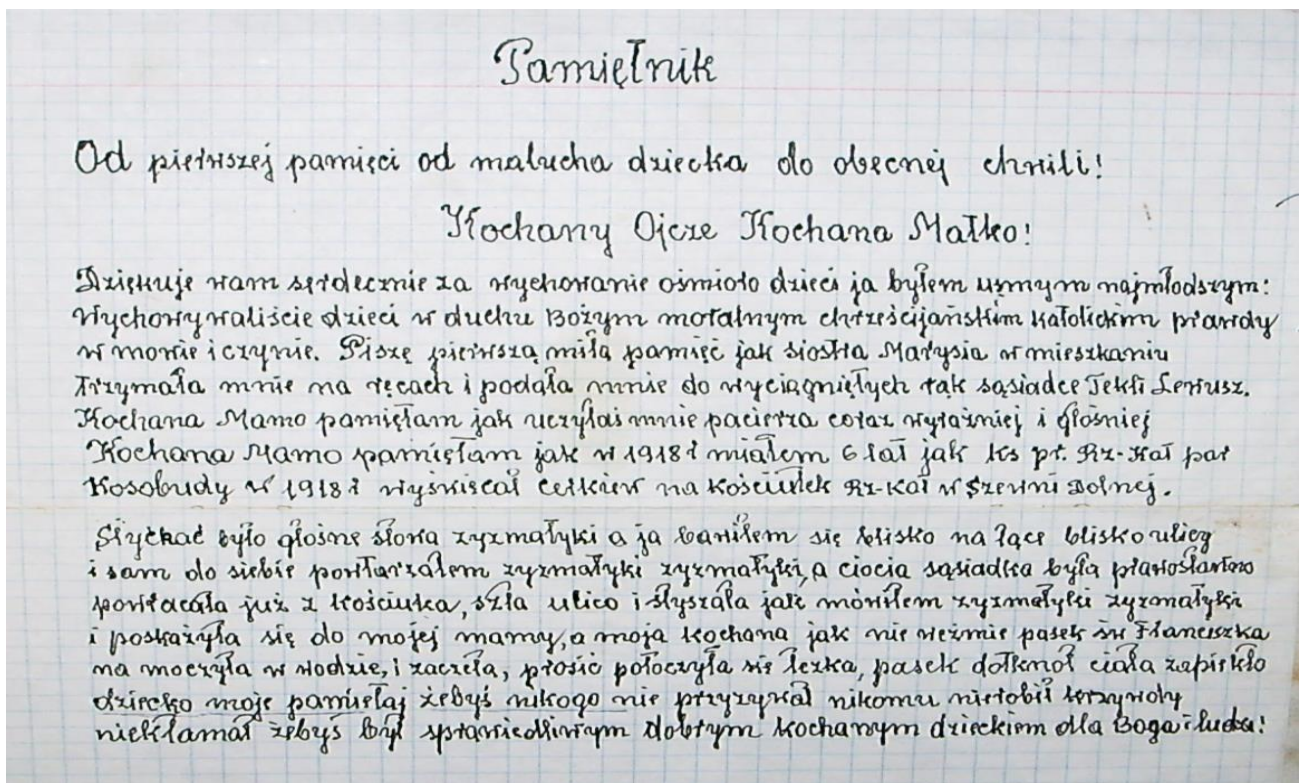 Pamiętnik
Od pierwszej pamięci od malucha dziecka do obecnej chwili!
Kochany Ojcze Kochana Matko!
Dziękuje wam serdecznie za wychowanie ośmioro dzieci ja byłem usmym najmłodszym:
Wychowywaliście dzieci w duchu Bożym moralnym chrześcijańskim katolickim prawdy
w mowie i czynie. Piszę pierwszą miłą pamięć jak siostra Marysia w mieszkaniu
trzymała mnie na ręcach i podała mnie do wyciągniętych rąk sąsiadce Tekli
Kochana Mamo pamiętam jak uczyłaś mnie pacierza coraz wyraźniej i głośniej
Kochana Mamo pamiętam jak w 1918 r miałem 6 lat jak ks pr. Rz-Kat par
Kosobudy w 1918 r wyświęcał cerkiew na kościułek Rz-Kat w Szewni Dolnej.
Słychać było głośne słowa zyzmatyki a ja bawiłem się blisko na łące blisko ulicy
i sam do siebie powtarzałem zyzmatyki zyzmatyki, a ciocia sąsiadka była prawosławno
powracała już z kościułka, szła ulico i słyszała jak mówiłem zyzmatyki zyzmatyki
i poskażyła się do mojej mamy, a moja kochana jak nie weźmie pasek św Franciszka
na moczyła w wodzie, i zaczeła, prosić potoczyła sie łezka, pasek dotknoł ciała zapiekło
dziecko moje pamietaj żebyś nikogo nie przyzywał nikomu nierobił krzywdy
niekłamał żebyś był sprawiedliwym dobrym kochanym dzieckiem dla Boga i ludzi!